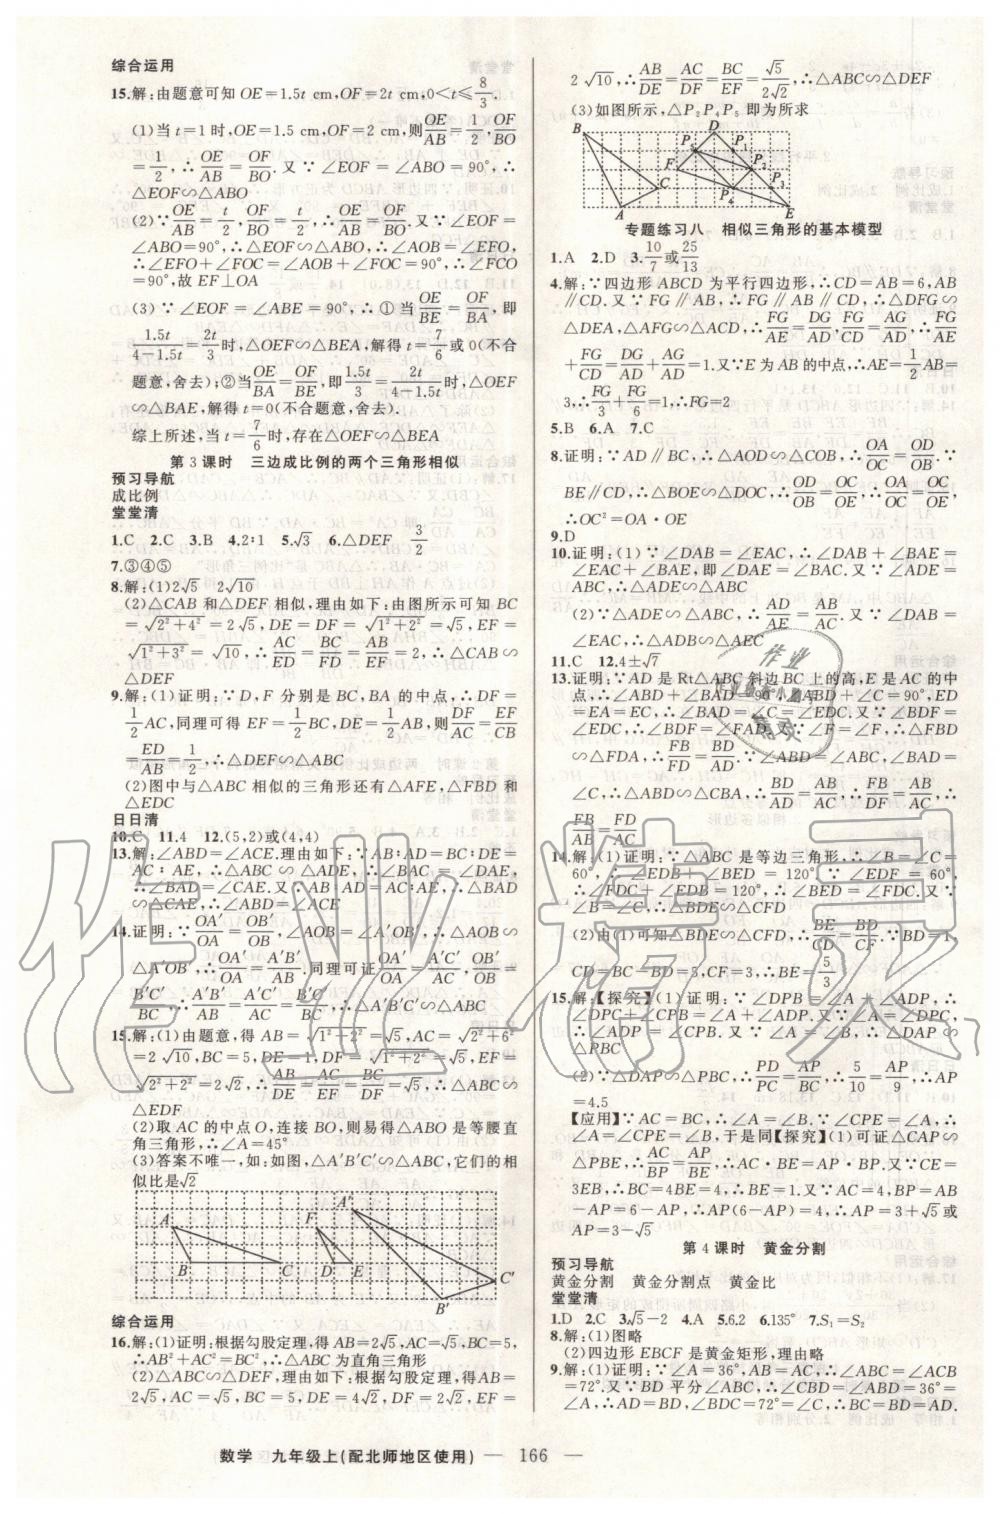 综合运用
15.解:由题意可知 OE=1.5t cm,OF=2t cm,0<t≤8/3.
(1)当 t=1 时,OE=1.5 cm,OF=2 cm,则OE/AB=1/2,OF/BO
=1/2,∴OE/AB=OF/BO.又∵∠EOF=∠ABO=90°,∴
△EOF∽△ABO
(2)∵OE/AB=t/2,OF/BO=t/2,∴OE/AB=OF/BO.又∵∠EOF=
∠ABO=90°,∴△EOF∽△ABO,∴∠AOB=∠EFO,
∴∠EFO+∠FOC=∠AOB+∠FOC,∴∠EFO+∠FOC
=90°,故 EF⊥OA
(3)∵∠EOF=∠ABE=90°,∴①当OE/BE=OF/BA,即
1.5t/(4-1.5t)=2t/3时,△OEF∽△BEA,解得 t=7/6或0(不合
题意,舍去);②当OE/BA=OF/BE,即1.5t/3=2t/(4-1.5t)时,△OEF
∽△BAE,解得 t=0(不合题意,舍去).
综上所述,当 t=7/6时,存在△OEF∽△BEA
第 3 课时　三边成比例的两个三角形相似
预习导航
成比例
堂堂清
1.C　2.C　3.B　4.2∶1　5.√3　6.△DEF　3/2
7.③④⑤
8.解:(1)2√5　2√10
(2)△CAB 和△DEF 相似,理由如下:由图所示可知 BC
=√(2²+4²)=2√5,DE=DF=√(1²+2²)=√5,EF=
√(1²+3²)=√10,∴AC/ED=BC/FD=AB/EF=2,∴△CAB∽
△DEF
9.解:(1)证明:∵D,F 分别是 BC,BA 的中点,∴DF=
1/2AC,同理可得 EF=1/2BC,DE=1/2AB,则DF/AC=EF/CB
=ED/AB=1/2,∴△ABC∽△DEF
(2)图中与△ABC 相似的三角形还有△AFE,△FBD 和
△EDC
日日清
10.C　11.4　12.(5,2)或(4,4)
13.解:∠ABD=∠ACE.理由如下:∵AB∶AD=BC∶DE=
AC∶AE,∴△ABC∽△ADE,∴∠BAC=∠DAE,
∴∠BAD=∠CAE.又∵AB∶AD=AC∶AE,∴△BAD
∽△CAE,∴∠ABD=∠ACE
14.证明:∵OA′/OA=OB′/OB,∠AOB=∠A′OB′,∴△AOB∽
△A′OB′,∴OA′/OA=A′B′/AB.同理可证OA′/OA=A′C′/AC,OB′/OB=
B′C′/BC,∴A′B′/AB=A′C′/AC=B′C′/BC,∴△A′B′C′∽△ABC
15.解:(1)由题意,得 AB=√(1²+2²)=√5,AC=√(2²+6²)
=2√10,BC=5,DE=1,DF=√(1²+2²)=√5,EF=
√(2²+2²)=2√2,∴AB/DE=AC/EF=BC/DF=√5,∴△ABC∽
△EDF
(2)取 AC 的中点 O,连接 BO,则易得△ABO 是等腰直
角三角形,∴∠A=45°
(3)答案不唯一,如:如图,△A′B′C′∽△ABC,它们的相
似比是√2
A
B
C
F
D
E
A′
B′
C′
综合运用
16.解:(1)证明:根据勾股定理,得 AB=2√5,AC=√5,BC=5,
∴AB²+AC²=BC²,∴△ABC 为直角三角形
(2)△ABC∽△DEF,理由如下:根据勾股定理,得 AB=
2√5,AC=√5,BC=5,DE=4√2,DF=2√2,EF=
2√10,∴AB/DE=AC/DF=BC/EF=√5/(2√2),∴△ABC∽△DEF
(3)如图所示,△P₂P₄P₅ 即为所求
B
A
C
D
F
P₅
P₁
P₂
P₃
P₄
E
专题练习八　相似三角形的基本模型
1.A　2.D　3.10/7或25/13
4.解:∵四边形 ABCD 为平行四边形,∴CD=AB=6,AB
∥CD.又∵FG∥AB,∴FG∥AB∥CD,∴△DFG∽
△DEA,△AFG∽△ACD,∴FG/AE=DG/AD,FG/CD=AG/AD,∴FG/AE
+FG/CD=DG/AD+AG/AD=1.又∵E 为 AB 的中点,∴AE=1/2AB=
3,∴FG/3+FG/6=1,∴FG=2
5.B　6.A　7.C
8.证明:∵AD∥BC,∴△AOD∽△COB,∴OA/OC=OD/OB.∵
BE∥CD,∴△BOE∽△DOC,∴OD/OB=OC/OE,∴OA/OC=OC/OE,
∴OC²=OA·OE
9.D
10.证明:(1)∵∠DAB=∠EAC,∴∠DAB+∠BAE=
∠EAC+∠BAE,即∠DAE=∠BAC.又∵∠ADE=
∠ABC,∴△ADE∽△ABC
(2)∵△ADE∽△ABC,∴AD/AE=AB/AC.又∵∠DAB=
∠EAC,∴△ADB∽△AEC
11.C　12.4±√7
13.证明:∵AD 是 Rt△ABC 斜边 BC 上的高,E 是 AC 的中
点,∴∠ABD+∠BAD=90°,∠ABD+∠C=90°,ED
=EA=EC,∴∠BAD=∠C=∠EDC.又∵∠BDF=
∠EDC,∴∠BDF=∠FAD.又∵∠F=∠F,∴△FBD
∽△FDA,∴FB/FD=BD/AD.∵∠ABD=∠ABC,∠BAD=
∠C,∴△ABD∽△CBA,∴BD/AD=AB/AC,∴FB/DF=AB/AC,∴
FB/AB=FD/AC
14.解:(1)证明:∵△ABC 是等边三角形,∴∠B=∠C=
60°,∴∠EDB+∠BED=120°.∵∠EDF=60°,
∴∠FDC+∠EDB=120°,∴∠BED=∠FDC.又∵
∠B=∠C,∴△BDE∽△CFD
(2)由(1)可知△BDE∽△CFD,∴BE/CD=BD/CF.∵BD=1,
CD=BC-BD=5,CF=3,∴BE=5/3
15.解:【探究】(1)证明:∵∠DPB=∠A+∠ADP,∴
∠DPC+∠CPB=∠A+∠ADP.又∵∠A=∠DPC,
∴∠ADP=∠CPB.又∵∠A=∠B,∴△DAP∽
△PBC
(2)∵△DAP∽△PBC,∴PD/PC=AP/BC,∴5/10=AP/9,∴AP
=4.5
【应用】∵AC=BC,∴∠A=∠B.∵∠CPE=∠A,∴
∠A=∠CPE=∠B,于是同【探究】(1)可证△CAP∽
△PBE,∴AC/BP=AP/BE,∴AC·BE=AP·BP.又∵CE=
3EB,∴BC=4BE=4,∴BE=1.又∵AC=4,BP=AB
-AP=6-AP,∴AP(6-AP)=4,∴AP=3+√5或
AP=3-√5
第 4 课时　黄金分割
预习导航
黄金分割　黄金分割点　黄金比
堂堂清
1.D　2.C　3.√5-2　4.A　5.6.2　6.135°　7.S₁=S₂
8.解:(1)图略
(2)四边形 EBCF 是黄金矩形,理由略
9.解:(1)证明:∵∠A=36°,AB=AC,∴∠ABC=∠ACB
=72°.又∵BD 平分∠ABC,∴∠CBD=∠ABD=36°=
∠A,∴AD=BD,∠BDC=72°=∠C,∴BC=BD=AD.
数学　九年级上(配北师地区使用)　— 166 —
作业精灵